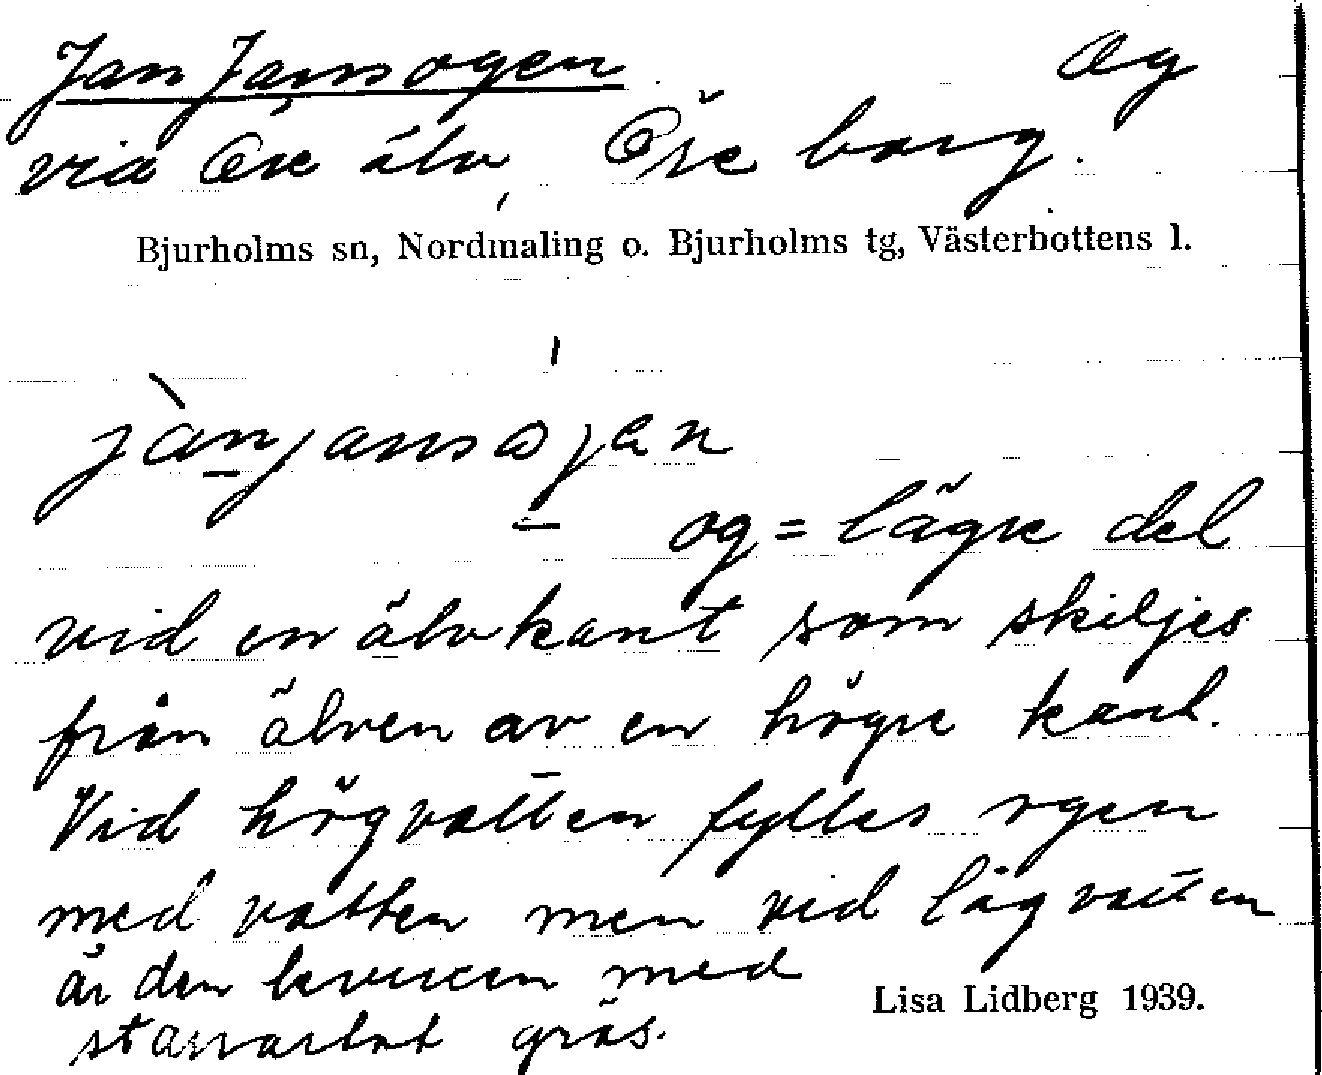 Jan Jansogen Og
vid Öre älv, Öreborg.
Bjurholms sn, Nordmaling o. Bjurholms tg, Västerbottens l.
jànjansojen
og = lägre del
vid en älvkant som skiljes
från älven av en högre kant.
Vid högvatten fylles ogen
med vatten men vid lågvatten
är den bevuxen med
starrartat gräs.
Lisa Lidberg 1939.